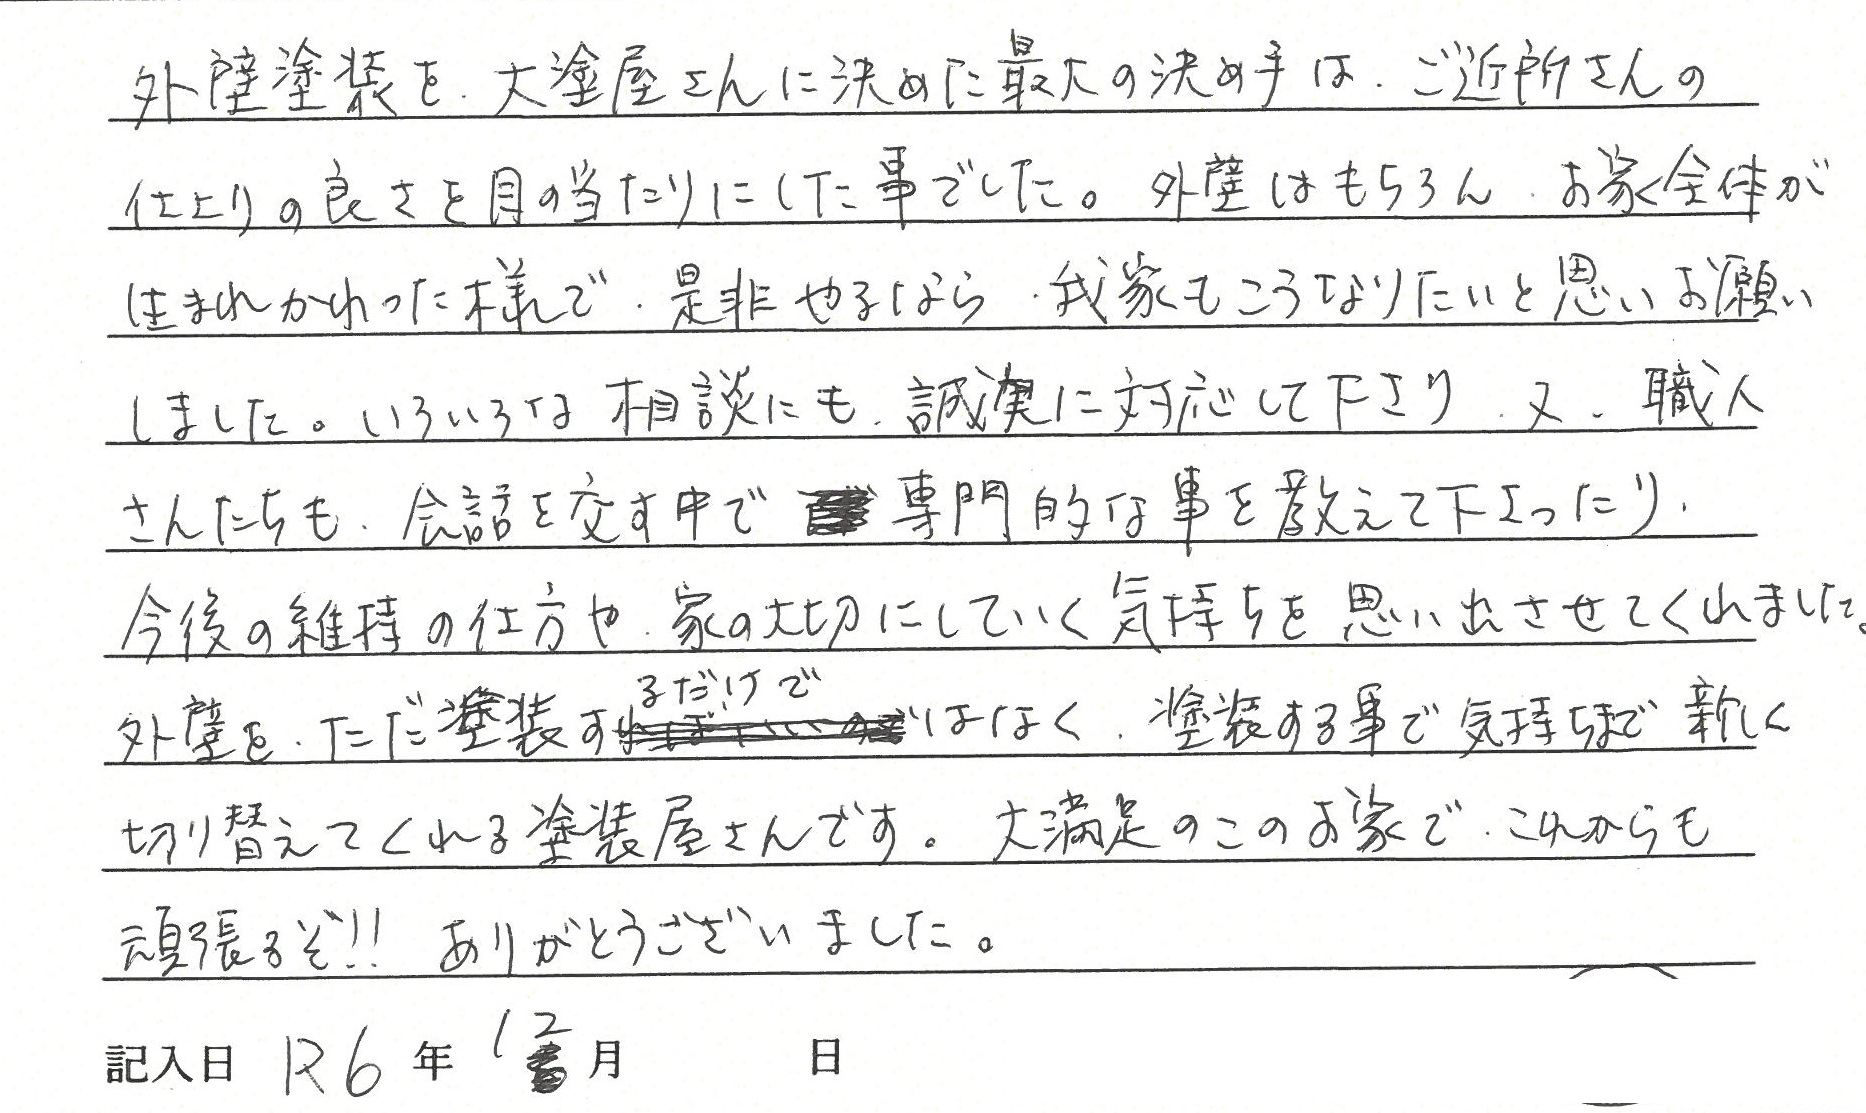 外壁塗装を、大塗屋さんに決めた最大の決め手は、ご近所さんの
仕上りの良さを目の当たりにした事でした。外壁はもちろん、お家全体が
生まれかわった様で、是非やるなら、我家もこうなりたいと思いお願い
しました。いろいろな相談にも、誠実に対応して下さり、又、職人
さんたちも、会話を交す中で専門的な事を教えて下さったり、
今後の維持の仕方や、家の大切にしていく気持ちを思い出させてくれました。
外壁を、ただ塗装するだけではなく、塗装する事で気持ちまで新しく
切り替えてくれる塗装屋さんです。大満足のこのお家で、これからも
頑張るぞ!! ありがとうございました。
記入日 R6年 12月 日